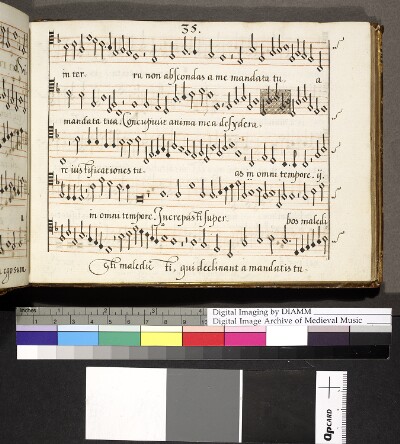 35.
in ter. ra non abscondas a me mandata tu. a
mandata tua. Concupivit anima mea desydera.
re iustificationes tu. as in omni tempore. ij.
in omni tempore. Increpasti super. bos maledi
cti maledi ti, qui declinant a mandatis tu.
inches 1 2 3
Digital Imaging by DIAMM
Digital Image Archive of Medieval Music
QPCARD